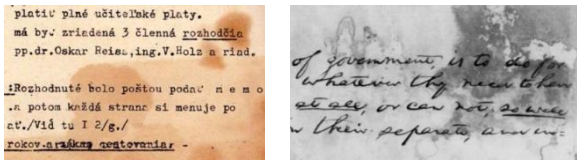 platiť plné učiteľské platy.
má byť zriadená 3 členná rozhodčia
pp.dr.Oskar Reisz,ing.V.Holz a riad.
:Rozhodnuté bolo poštou podať m e m o
.a potom každá strana si menuje po
ať./Viď tu I 2/g./
rokov a zákaz cestovania: -
of government, is to do for
whatever they need to have
at all, or can not, so well
in their separate, and in=